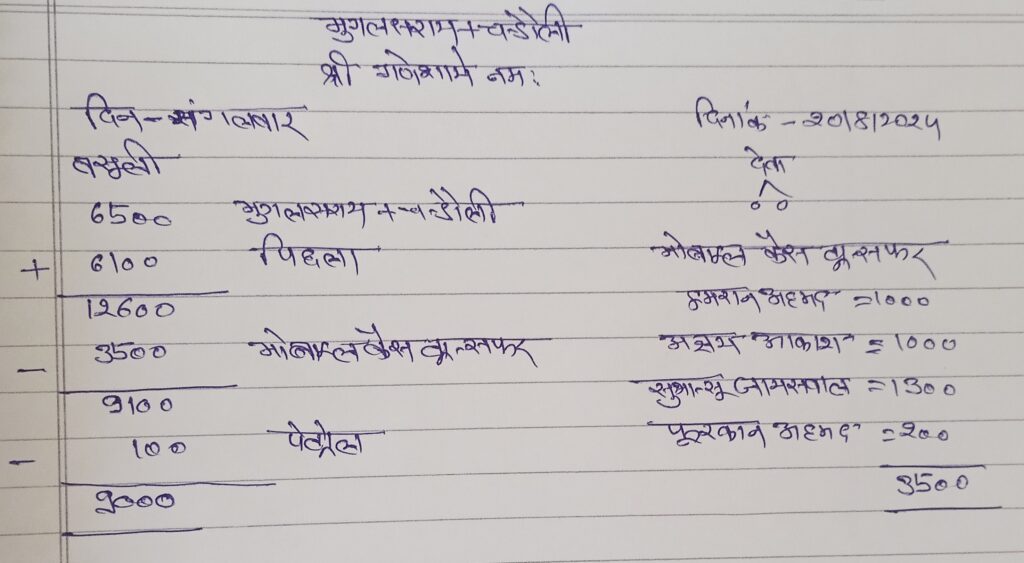 मुगलसराय + चन्डौली
श्री गणेशाये नमः
दिन - मंगलवार
दिनांक - 20/8/2024
वसूली
देवा
6500 मुगलसराय + चन्डौली
+ 6100 पिछला
मोबाइल कैस ट्रान्सफर
12600
इमरान अहमद = 1000
- 3500 मोबाइल कैस ट्रान्सफर
अक्षय आकाश = 1000
9100
सुधान्सू जायसवाल = 1300
- 100 पेट्रोल
फूरकान अहमद = 200
9000
3500